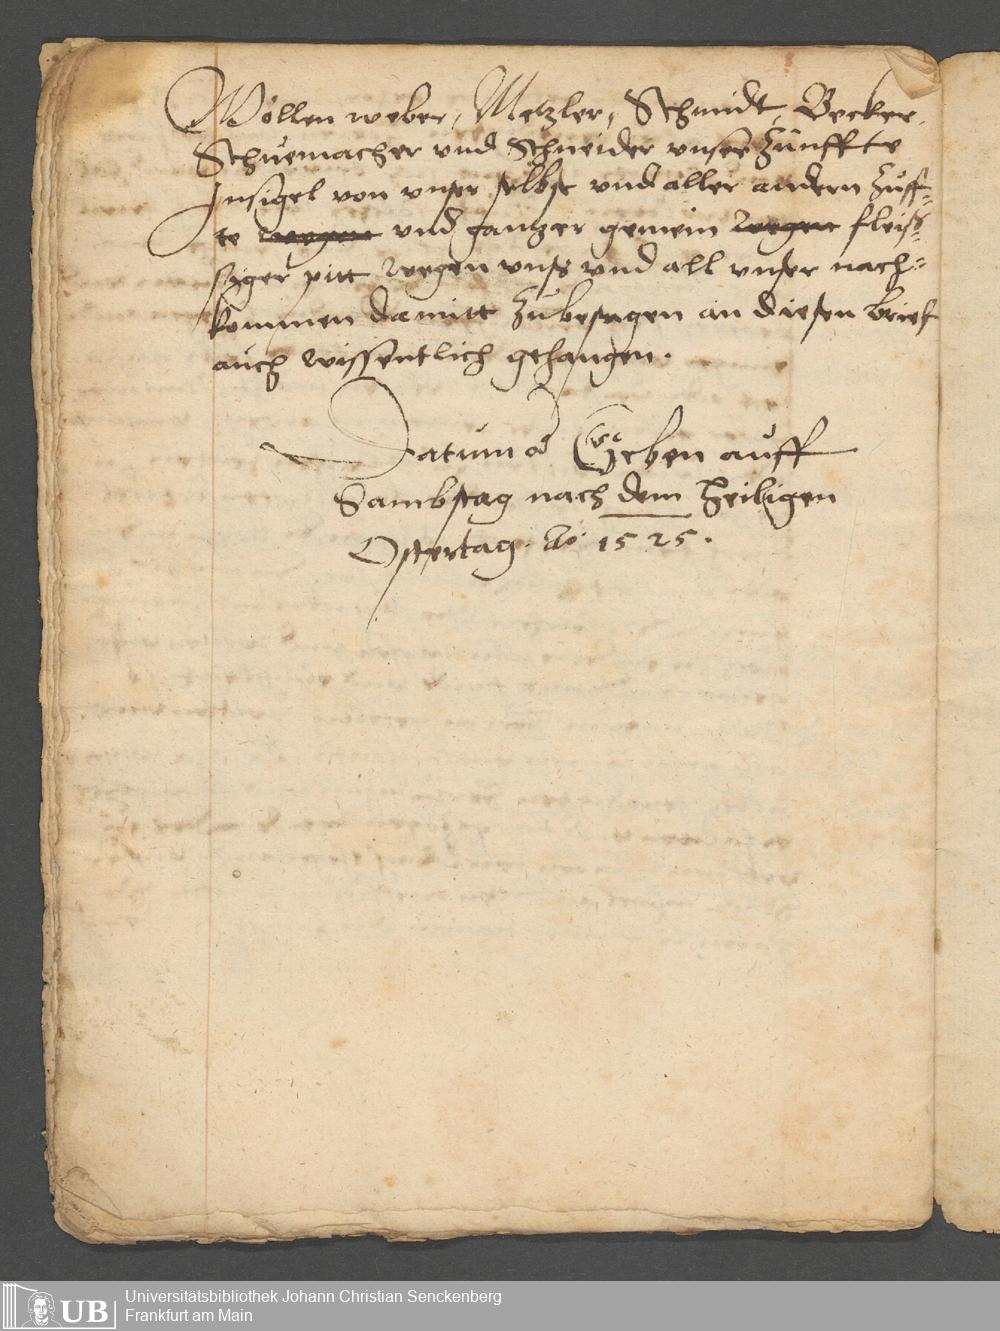 Wöllen weber, Metzler, Schmidt, Becker,
Schuemacher vnd Schneider vnser Zunffte
Insigel von vnser selbst vnd aller andern Zuff-
te wegen vnd gantzer gemein wegen fleiß-
siger pitt wegen vnß vnd all vnser nach-
kommen damitt Zubesagen an diesen brief
auch wissentlich gehangen.
Datum Geben auff
Sambstag nach dem Heiligen
Ostertag. Ao 1525.
UB Universitätsbibliothek Johann Christian Senckenberg
Frankfurt am Main